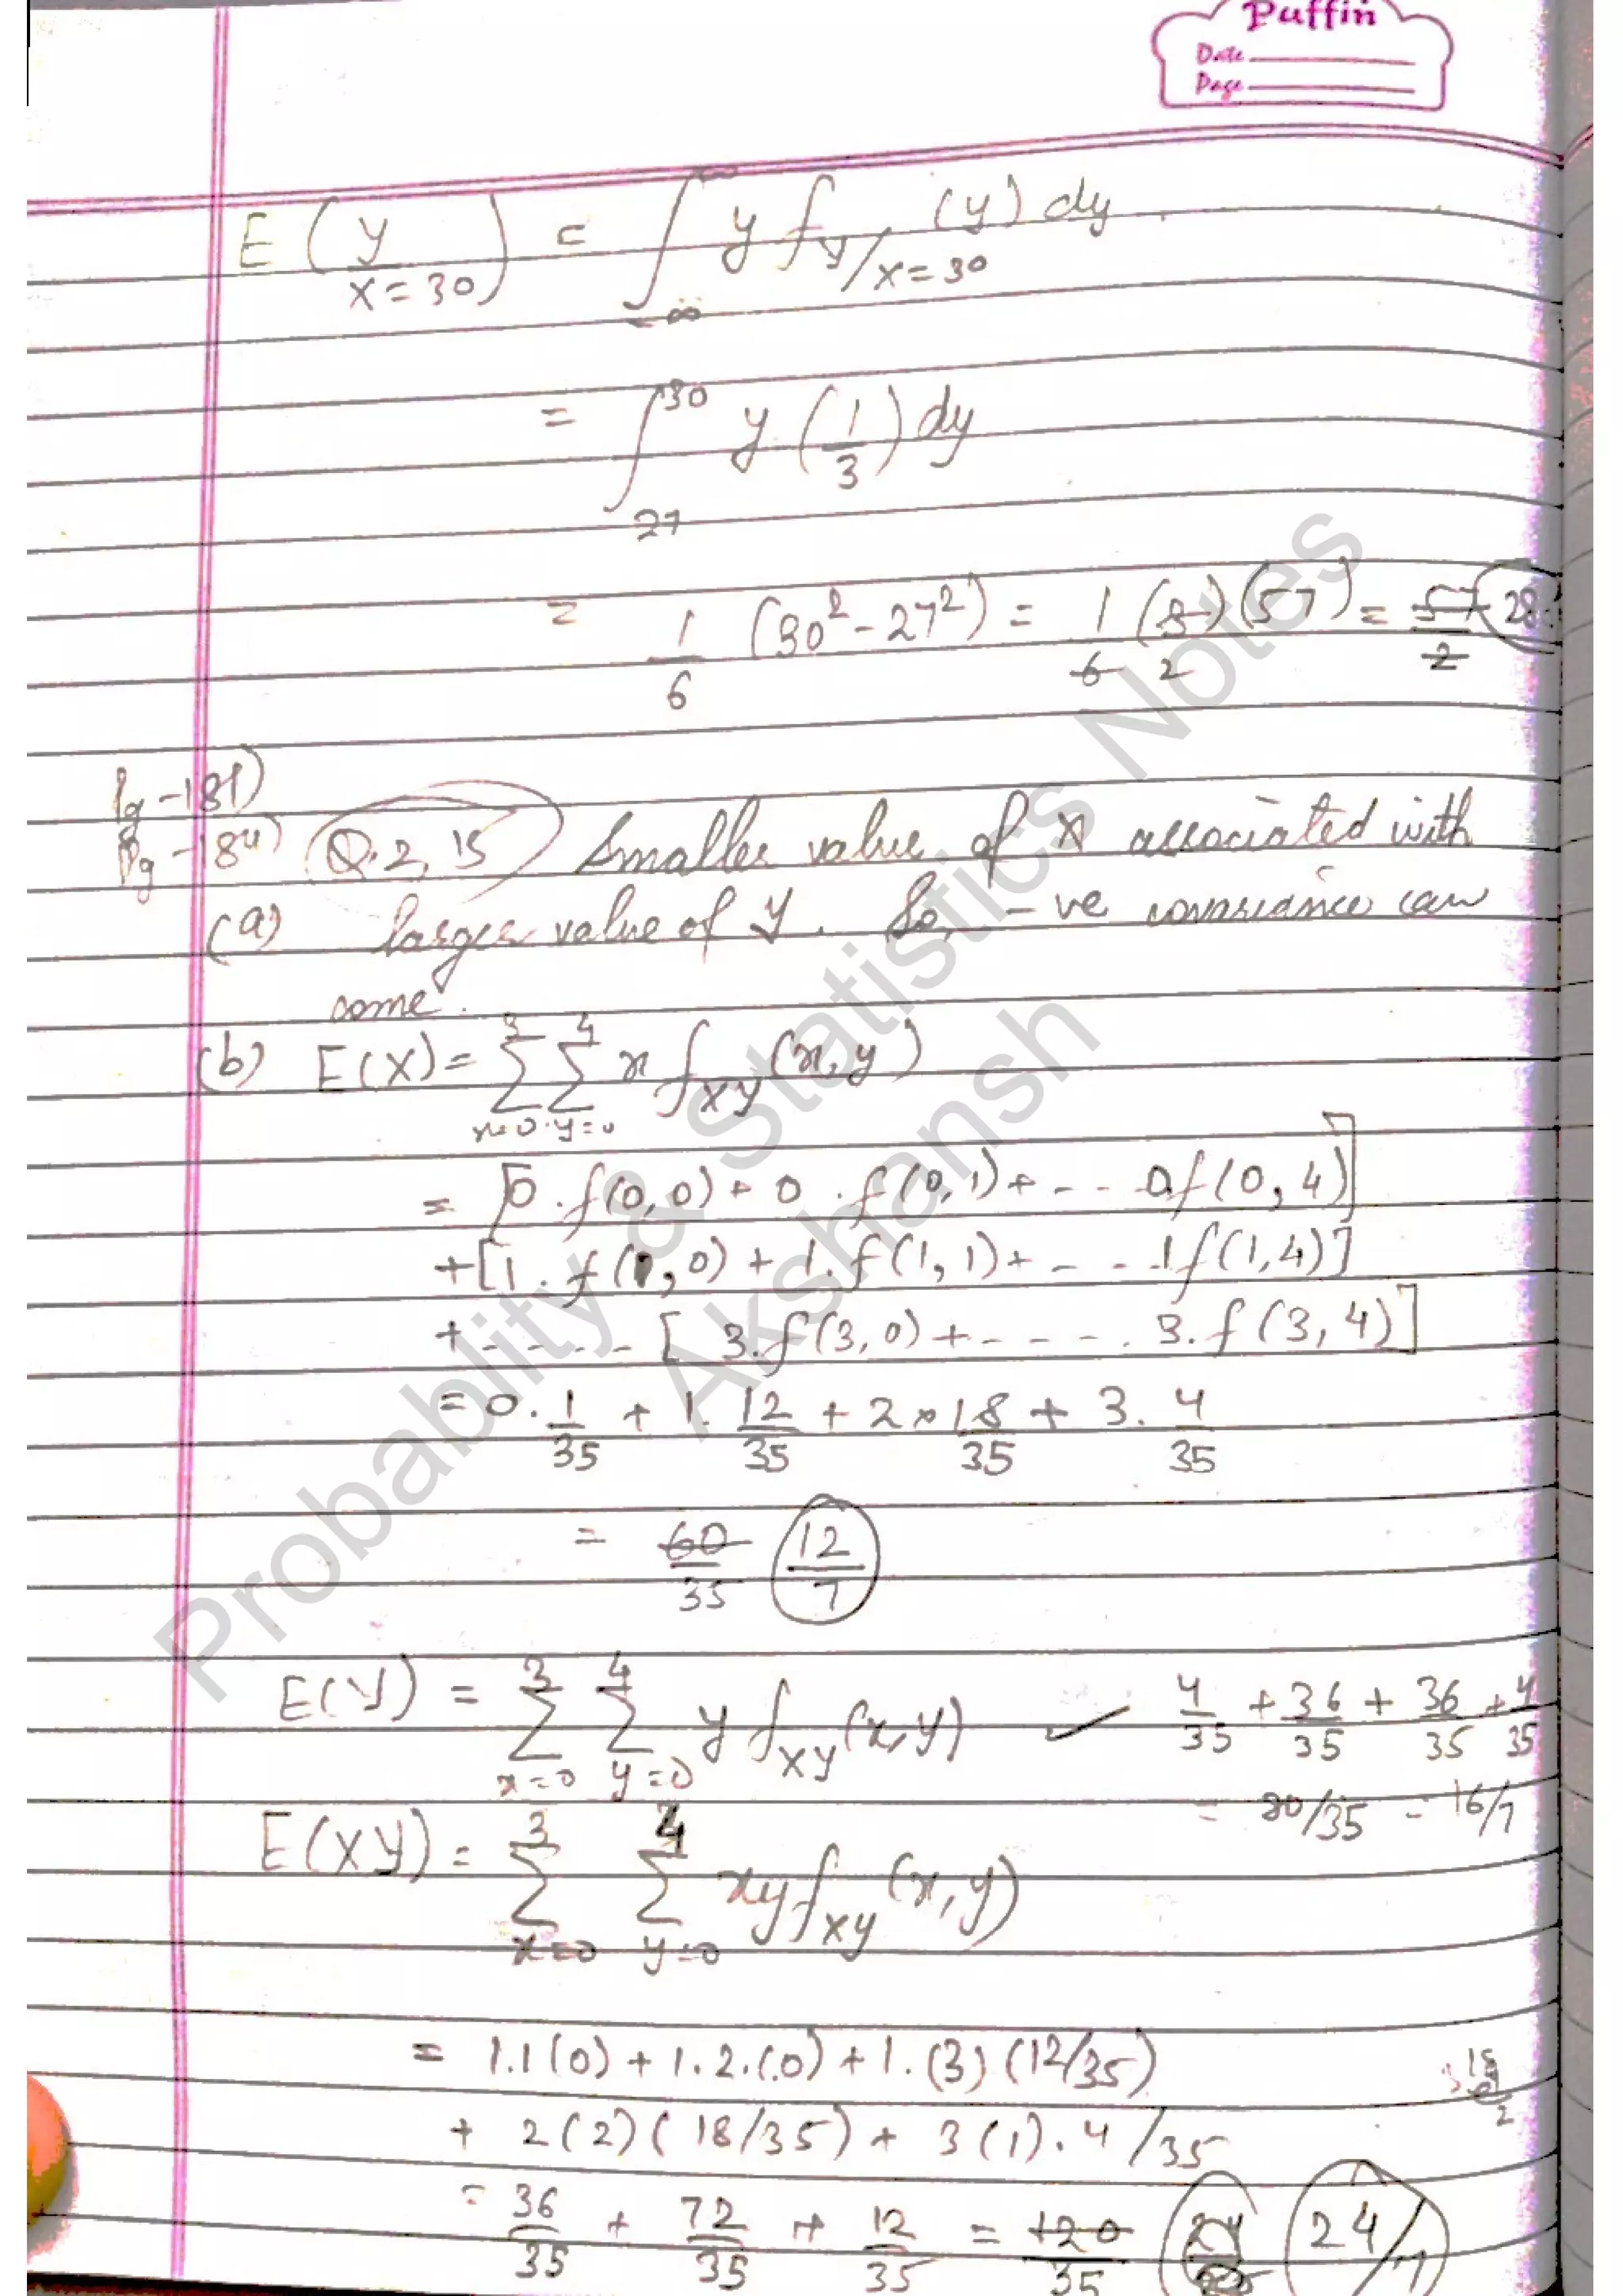 Puffin
Date
Page
E(y/x=30) = ∫_{-∞}^{∞} y f_{y/x=30} (y) dy
= ∫_{27}^{30} y (1/3) dy
= 1/6 (30² - 27²) = 1/6 (3) (57) = 57/2 28.
Pg-181)
Pg-184) Q.2, 15 Smaller value of X associated with
(a) larger value of Y. So, -ve covariance can
come.
(b) E(X) = Σ_{x=0}^{3} Σ_{y=0}^{4} x f_{XY}(x,y)
= [0.f(0,0) + 0.f(0,1) + -- 0f(0,4)]
+[1.f(1,0) + 1.f(1,1) + - - -1f(1,4)]
+ - - - - - [3.f(3,0) + - - - - 3.f(3,4)]
= 0.1/35 + 1.12/35 + 2×18/35 + 3.4/35
= 60/35 12/7
E(Y) = Σ_{x=0}^{3} Σ_{y=0}^{4} y f_{XY}(x,y) ✓ 4/35 + 36/35 + 36/35 + 4/35
= 80/35 = 16/7
E(XY) = Σ_{x=0}^{3} Σ_{y=0}^{4} xy f_{XY}(x,y)
= 1.1(0) + 1.2.(0) + 1.(3)(12/35)
+ 2(2)(18/35) + 3(1).4/35
= 36/35 + 72/35 + 12/35 = 120/35 24/7
Probablity & Statistics Notes
Akshansh